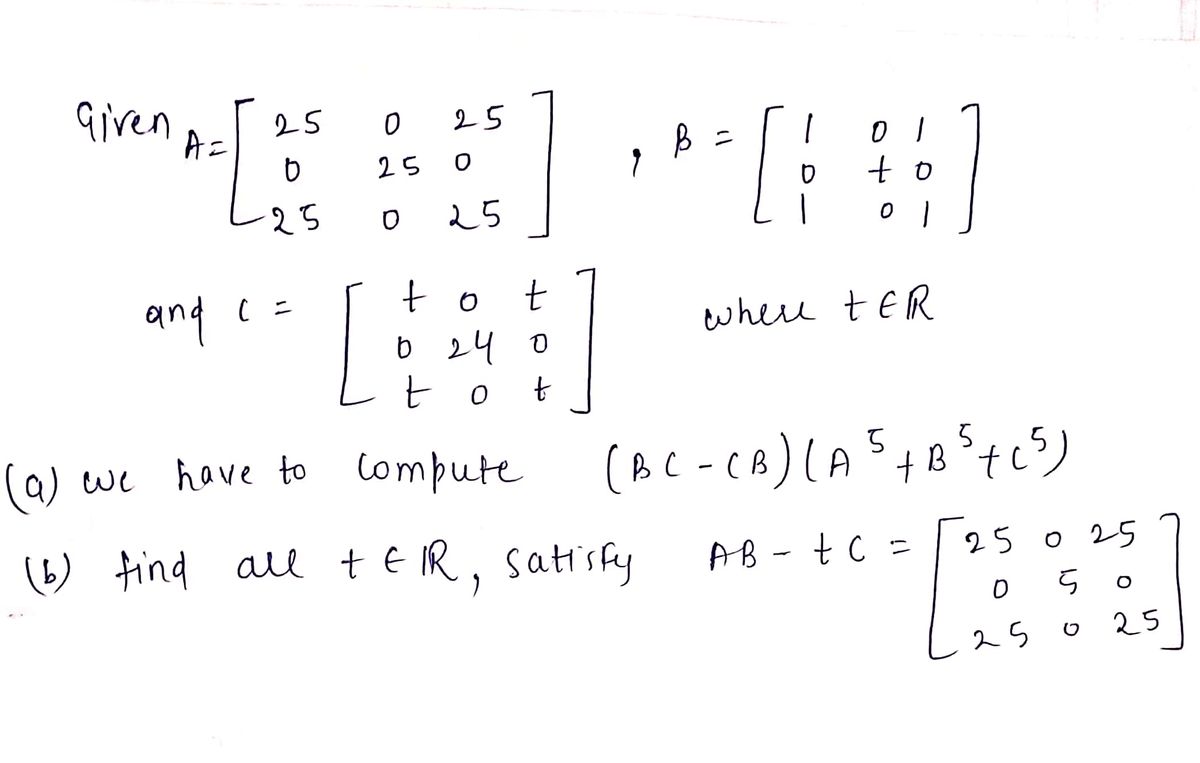 Given A = [ 25 0 25 ; 0 25 0 ; 25 0 25 ] , B = [ 1 0 1 ; 0 t 0 ; 1 0 1 ]
and C = [ t 0 t ; 0 24 0 ; t 0 t ] where t ∈ R
(a) we have to compute (BC - CB)(A^5 + B^5 + C^5)
(b) find all t ∈ IR, satisfy AB - tC = [ 25 0 25 ; 0 5 0 ; 25 0 25 ]